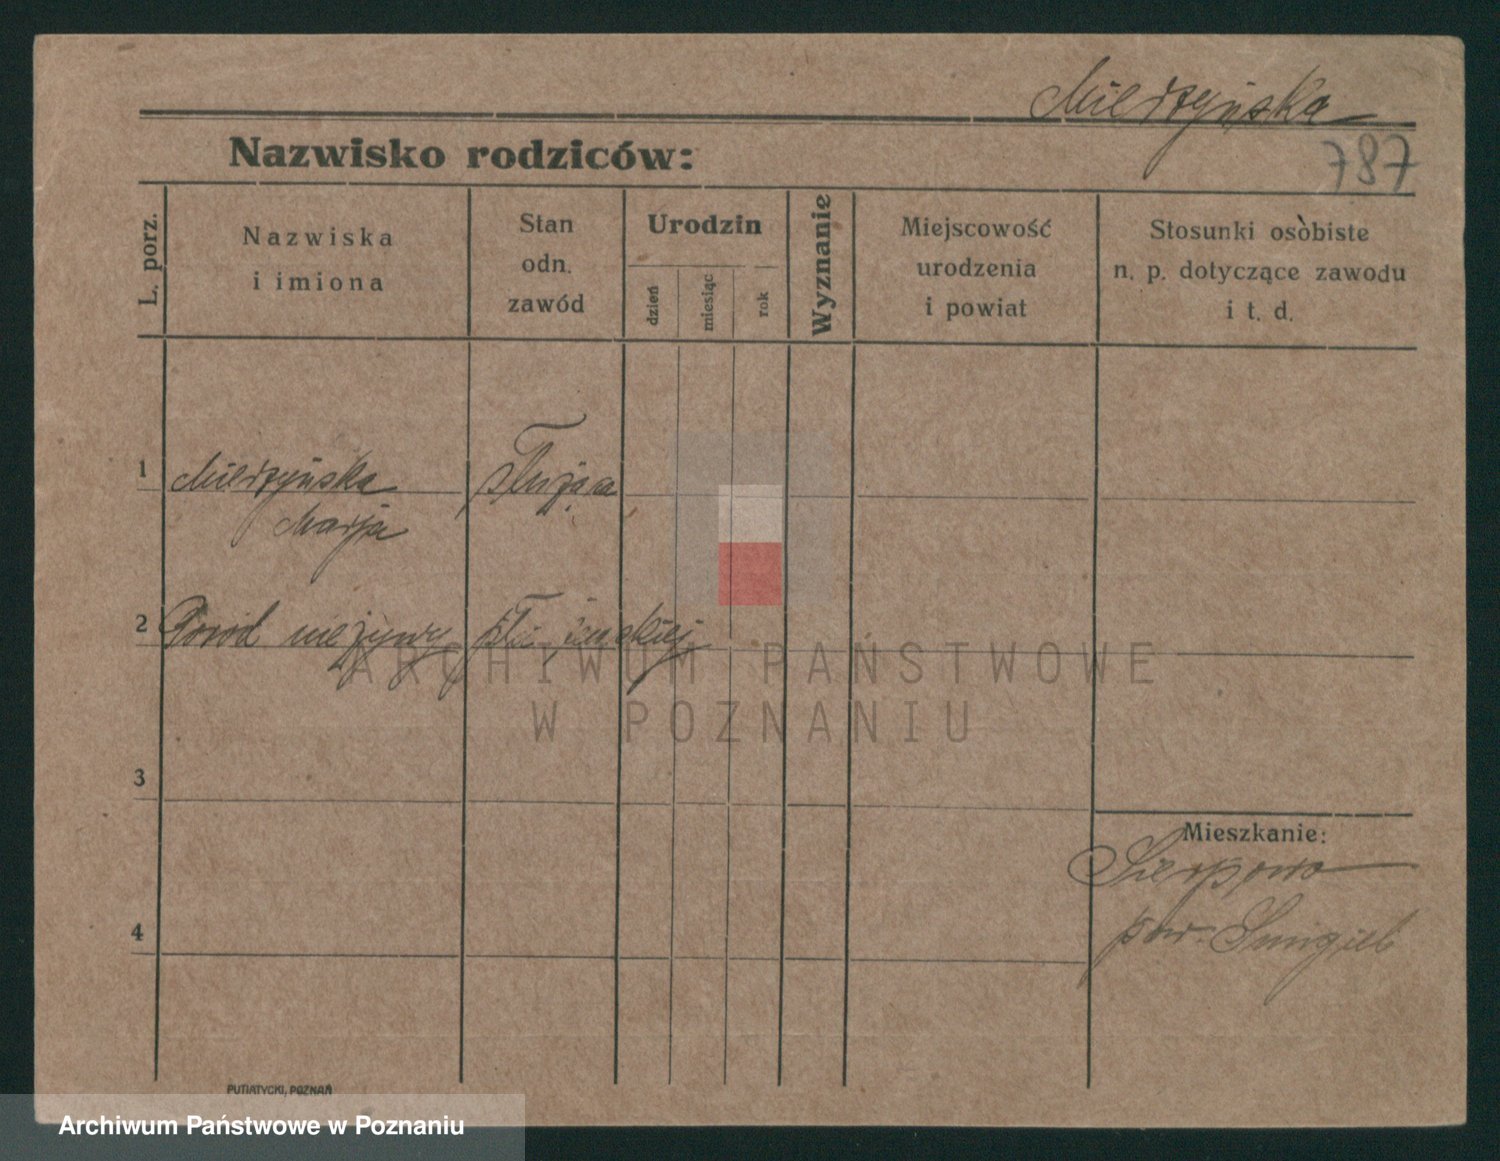 Mierzyńska
787
Nazwisko rodziców:
L. porz.
Nazwiska
i imiona
Stan
odn.
zawód
Urodzin
dzień
miesiąc
rok
Wyznanie
Miejscowość
urodzenia
i powiat
Stosunki osobiste
n. p. dotyczące zawodu
i t. d.
1
Mierzyńska
Marja
służąca
2
Poród nieżywy płci żeńskiej
ARCHIWUM PAŃSTWOWE
W POZNANIU
3
Mieszkanie:
Sierpowo
pow. Śmigiel
4
PUTIATYCKI, POZNAŃ
Archiwum Państwowe w Poznaniu